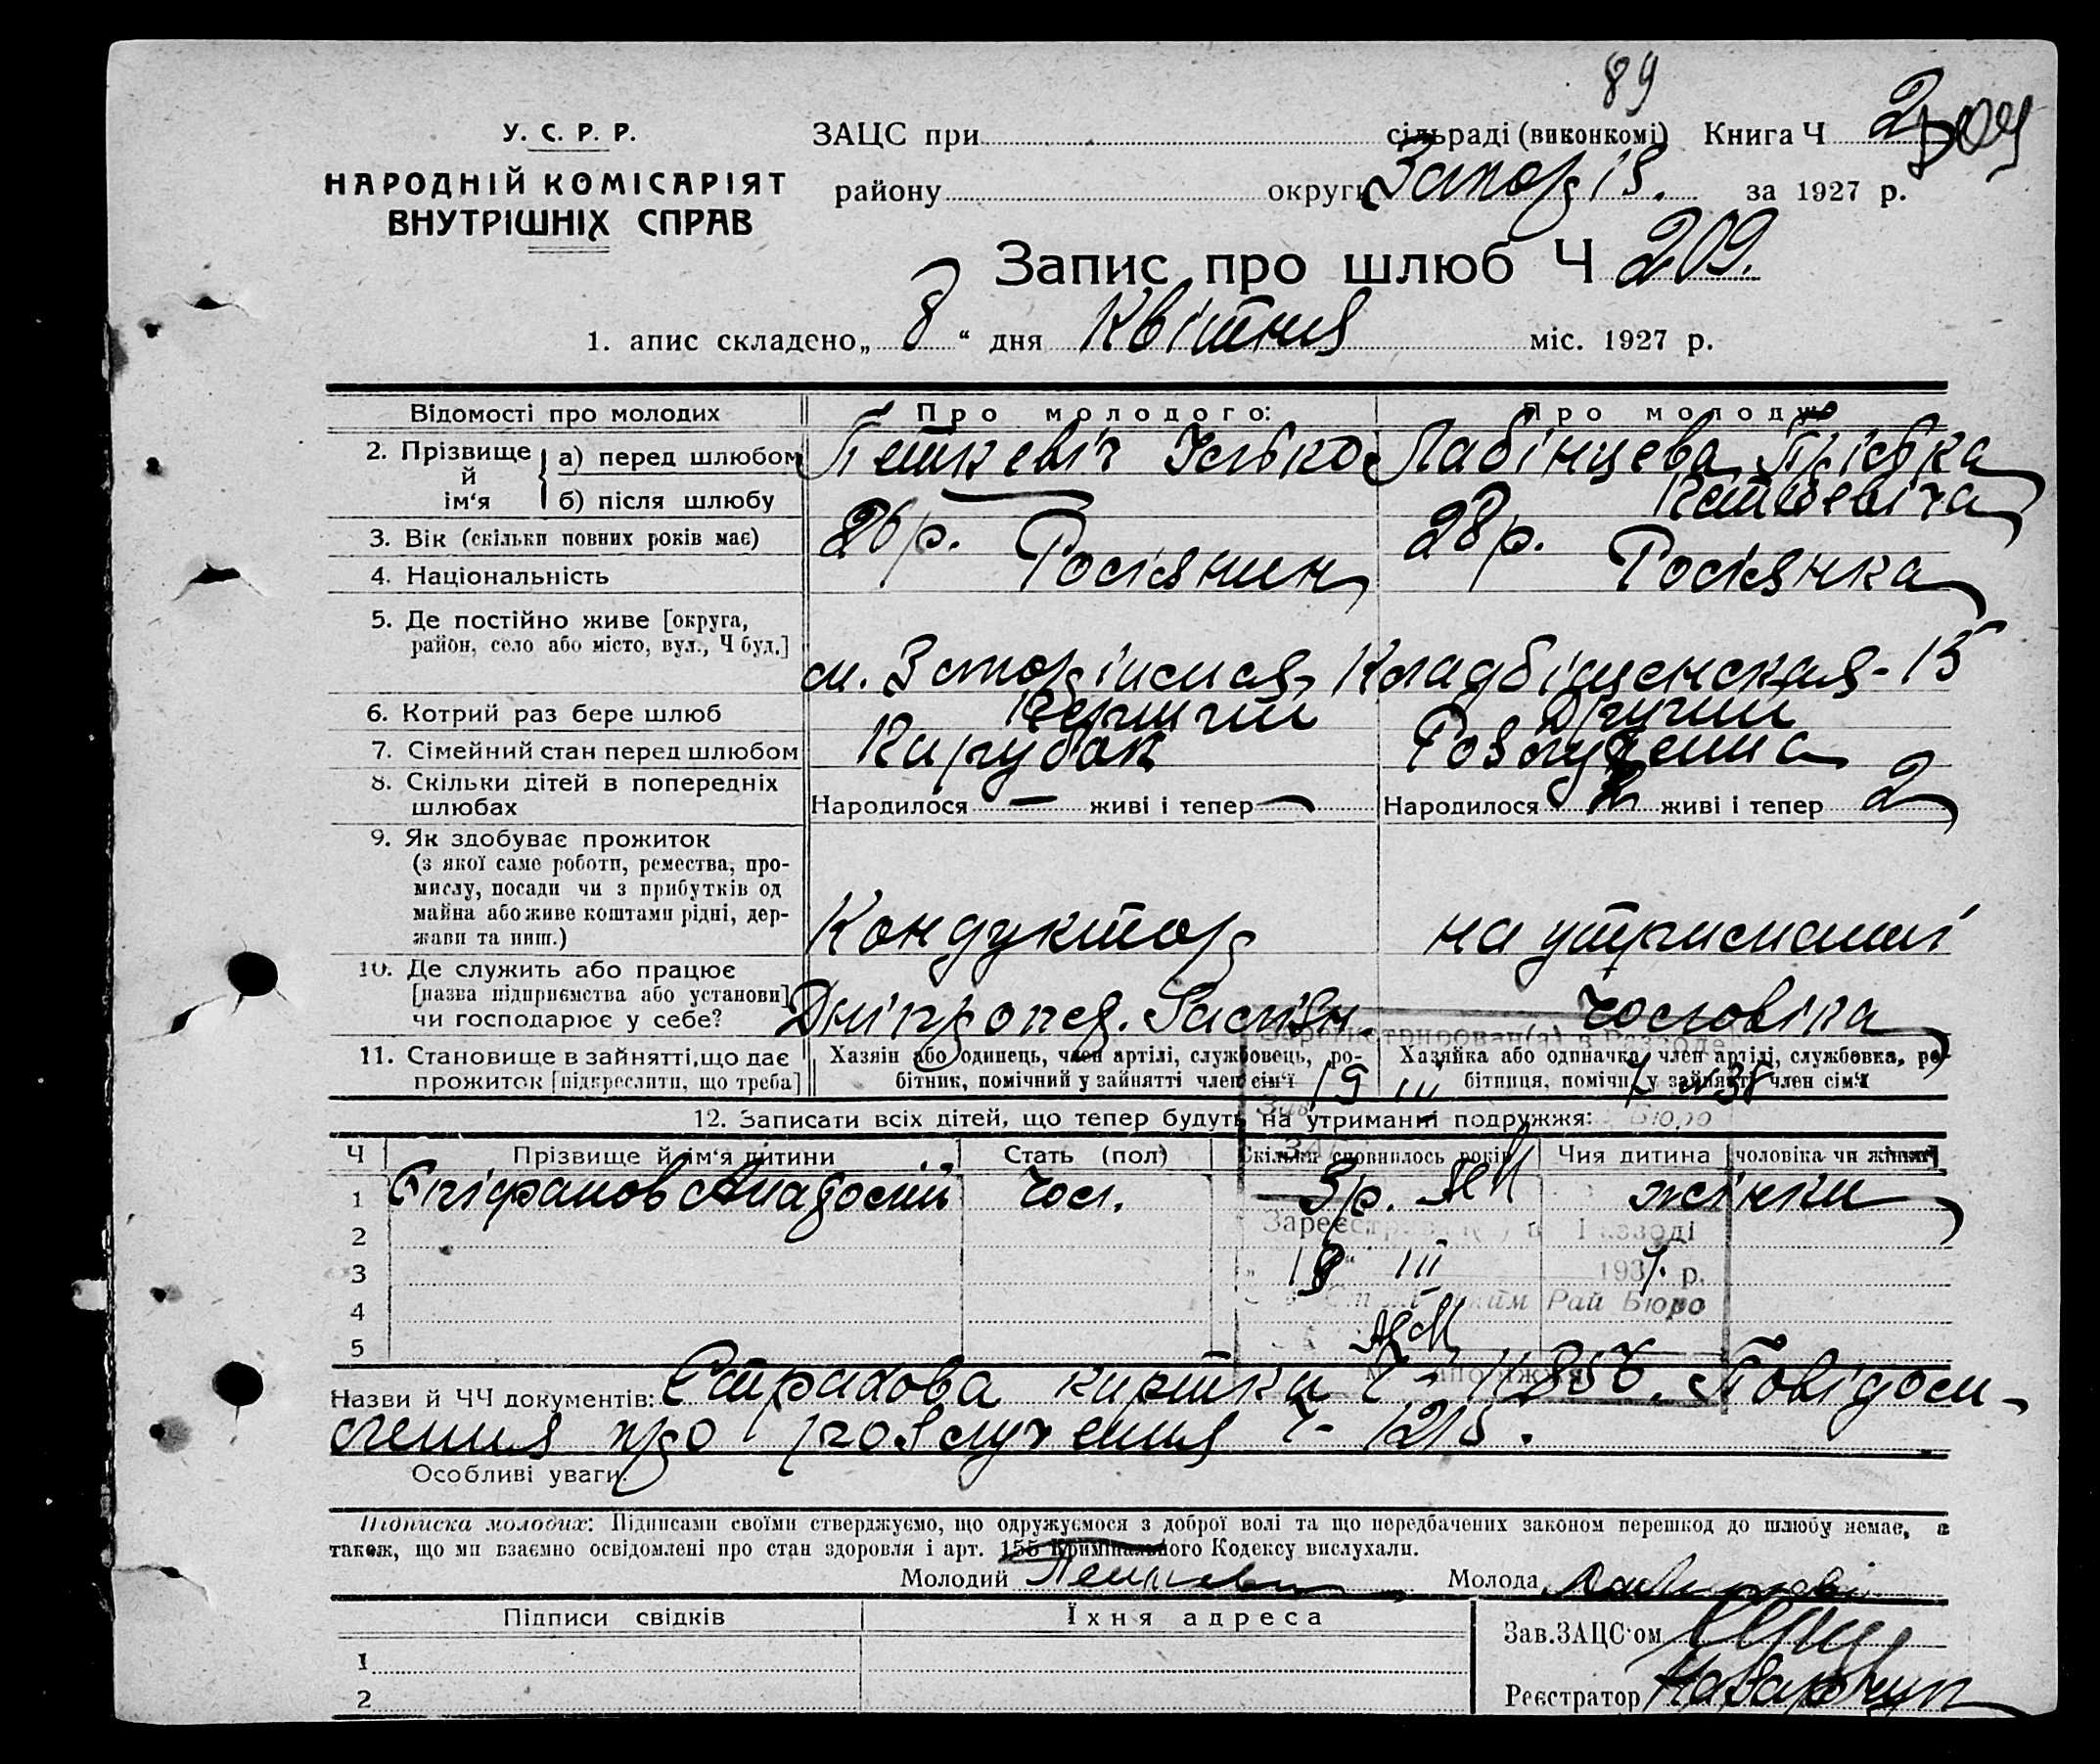 89
У. С. Р. Р.
НАРОДНІЙ КОМІСАРІЯТ
ВНУТРІШНІХ СПРАВ
ЗАЦС при сільраді (виконкомі) Книга Ч 2
району округи Запоріз. за 1927 р.
Запис про шлюб Ч 209.
1. апис складено „8“ дня Квітня міс. 1927 р.
Відомості про молодих Про молодого: Про молоду
2. Прізвище й ім‘я а) перед шлюбом Петкевіч Лабінцева
б) після шлюбу Петкевіча
3. Вік (скільки повних років має) 26 р. 28 р.
4. Національність Росіянин Росіянка
5. Де постійно живе [округа,
район, село або місто, вул., Ч буд.]
м. Кладбіщенская-15
6. Котрий раз бере шлюб Перший Другий
7. Сімейний стан перед шлюбом Парубок Розлучена
8. Скільки дітей в попередніх
шлюбах Народилося — живі і тепер — Народилося 2 живі і тепер 2
9. Як здобуває прожиток
(з якої саме роботи, ремества, про-
мислу, посади чи з прибутків од
майна або живе коштами рідні, дер-
жави та инш.) Кондуктор на утриманні
10. Де служить або працює
[назва підприємства або установи]
чи господарює у себе? чоловіка
11. Становище в зайнятті, що дає
прожиток [підкреслити, що треба]
Хазяїн або одинець, член артілі, службовець, ро-
бітник, помічний у зайнятті член сім‘ї
Хазяйка або одиначка, член артілі, службовка, ро-
бітниця, помічн. у зайнятті член сім‘ї
Зарегистрирован(а) в Разводе
19 III
12. Записати всіх дітей, що тепер будуть на утриманні подружжя:
Ч Прізвище й ім‘я дитини Стать (пол) Скільки сповнилось років Чия дитина [чоловіка чи жінки]
1 Єпіфанов чол. 3 р. жінки
2
3
4
5
Зареєстрован( ) в Розводі
19 III 1937 р.
Рай Бюро
Назви й ЧЧ документів: Страхова картка Ч- Повідом-
лення про розлучення Ч- 1215.
Особливі уваги:
Підписка молодих: Підписами своїми стверджуємо, що одружуємося з доброї волі та що передбачених законом перешкод до шлюбу немає, а
також, що ми взаємно освідомлені про стан здоровля і арт. 155 Кримінального Кодексу вислухали.
Молодий Петкевич Молода
Підписи свідків Їхня адреса
Зав. ЗАЦС‘ом
1
2
Реєстратор